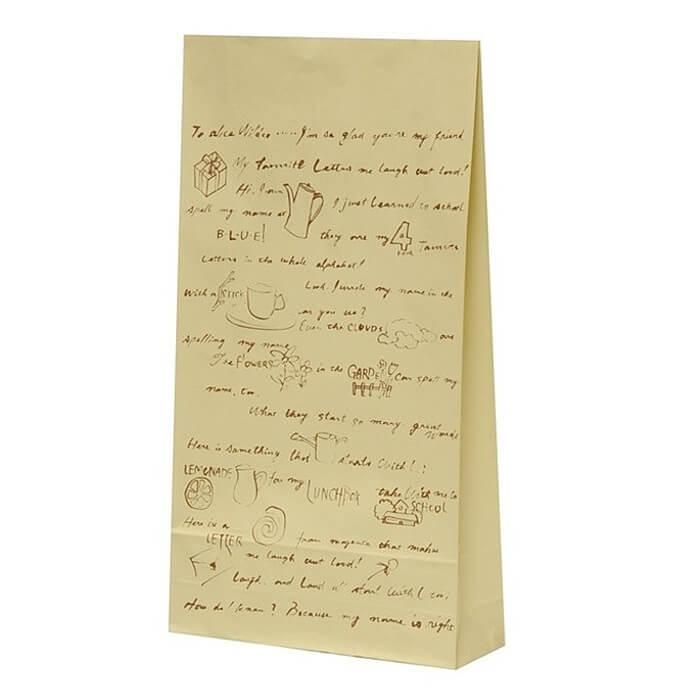 To alice Wilder.....I'm so glad you're my friend
My favorite Letters me laugh out loud!
Hi. I own I just learned in school
spell my name at
B·L·U·E! they are my 4 FOUR Favorite
Letters in the whole alphabet!
Look. I wrote my name in the
With a STICK or you is?
Even the CLOUDS are
spelling my name
The FLOWERS in the GARDEN Can spell my
name, too.
What they start so many great Words
Here is something that starts With L:
LEMONADE for my LUNCHBOX take With me to
SCHOOL
Here is a
LETTER from magenta that makes
me laugh out loud!
Laugh. and Loud it start With L too;
How do I know? Because my name is right